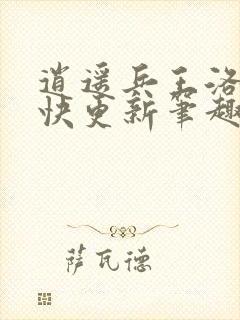 逍遥兵王洛
快更新笔趣
萨瓦德